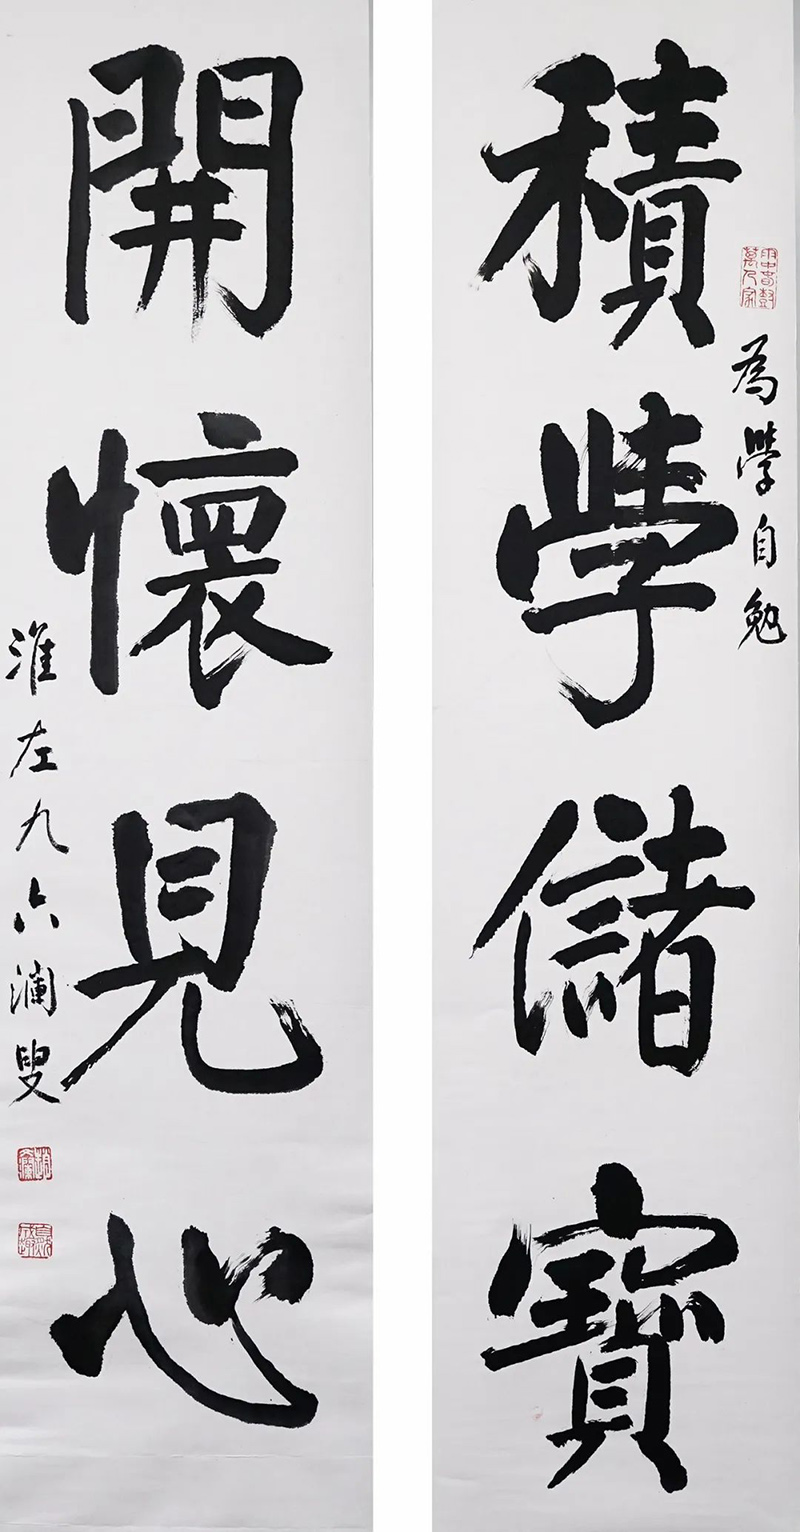 積學儲寶
為學自勉
開懷見心
淮左九六瀾叟